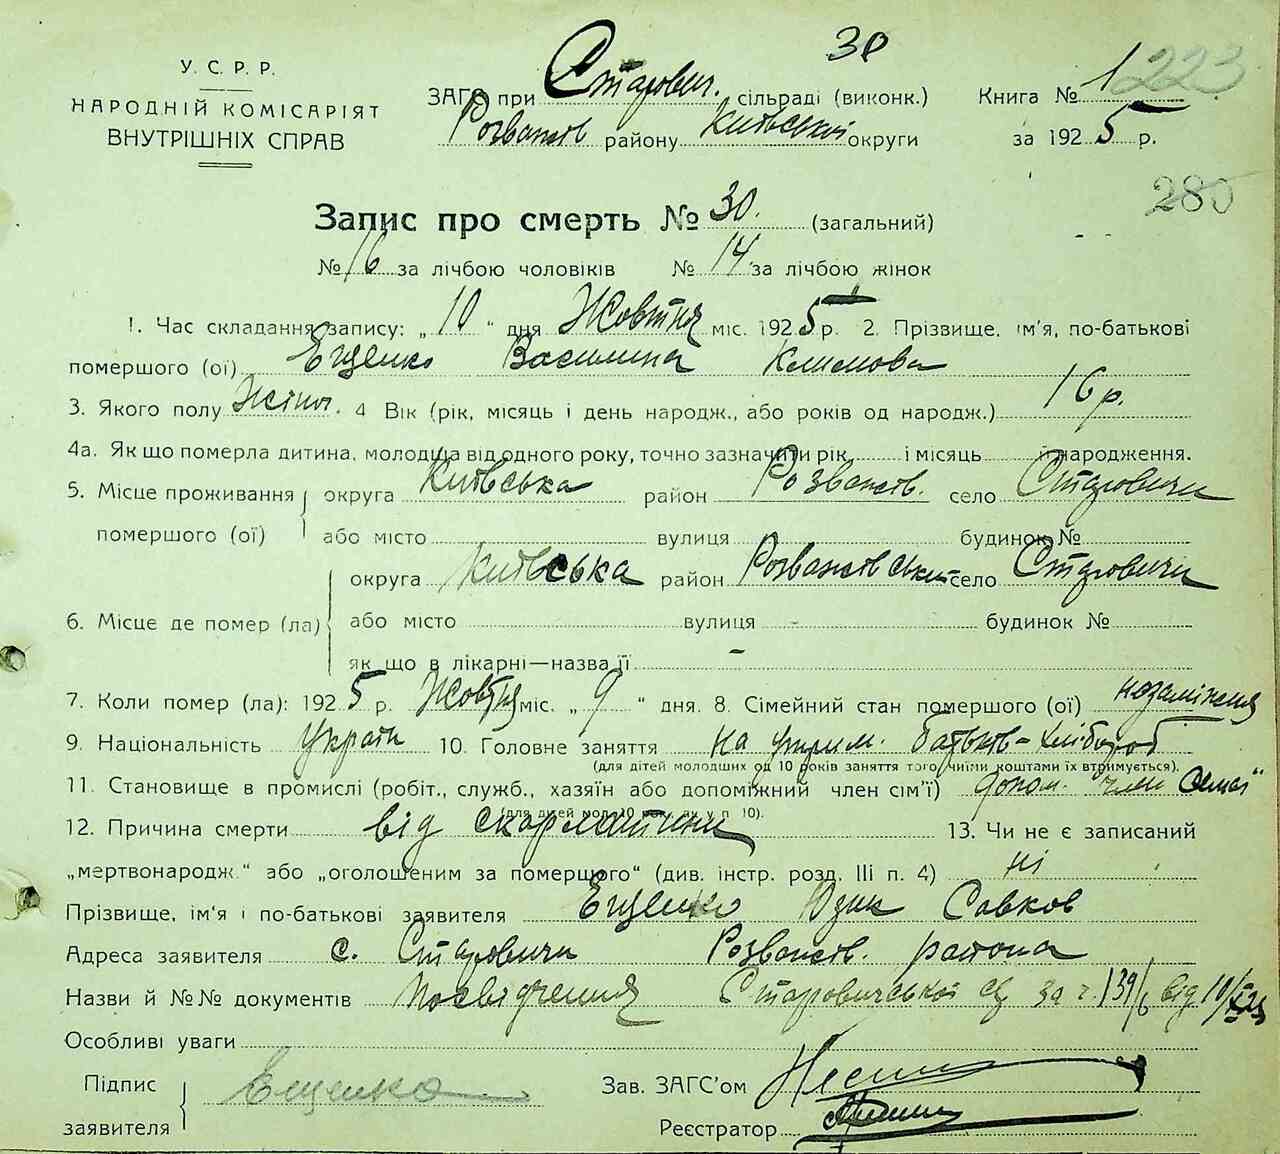 30
У. С. Р. Р.
НАРОДНІЙ КОМІСАРІЯТ
ВНУТРІШНІХ СПРАВ
ЗАГС при Старович. сільраді (виконк.)
Розважів району Київської округи
Книга № 1 223
за 1925 р.
280
Запис про смерть № 30. (загальний)
№ 16 за лічбою чоловіків № 14 за лічбою жінок
1. Час складання запису: „10“ дня Жовтня міс. 1925 р. 2. Прізвище, ім'я, по-батькові
помершого (ої) Ещенко Василина Климова
3. Якого полу Жіноч. 4 Вік (рік, місяць і день народж., або років од народж.) 16 р.
4а. Як що померла дитина, молодша від одного року, точно зазначити рік, і місяць і народження.
5. Місце проживання округа Київська район Розважів. село Старовичи
помершого (ої) або місто вулиця будинок №
округа Київська район Розважівський село Старовичи
6. Місце де помер (ла) або місто вулиця - будинок №
як що в лікарні—назва її -
7. Коли помер (ла): 1925 р. Жовтня міс. „9“ дня. 8. Сімейний стан помершого (ої) незаміжня
9. Національність Україн 10. Головне заняття на утрим. батьків-хлібороб
(для дітей молодших од 10 років заняття того, чиїми коштами їх втримується).
11. Становище в промислі (робіт., служб., хазяїн або допоміжний член сім'ї) допом. член семї
(для дітей мол. 10 рок. як у п 10).
12. Причина смерти від скарлатини 13. Чи не є записаний
„мертвонародж.“ або „оголошеним за померщого“ (див. інстр. розд. III п. 4) ні
Прізвище, ім'я і по-батькові заявителя Ещенко Юзик Савков
Адреса заявителя с. Старовичи Розважів. района
Назви й №№ документів Посвідчення Старовичської с/р за ч. 139/6 від 10/X 25
Особливі уваги
Підпис Ещенко Зав. ЗАГС'ом
заявителя Реєстратор